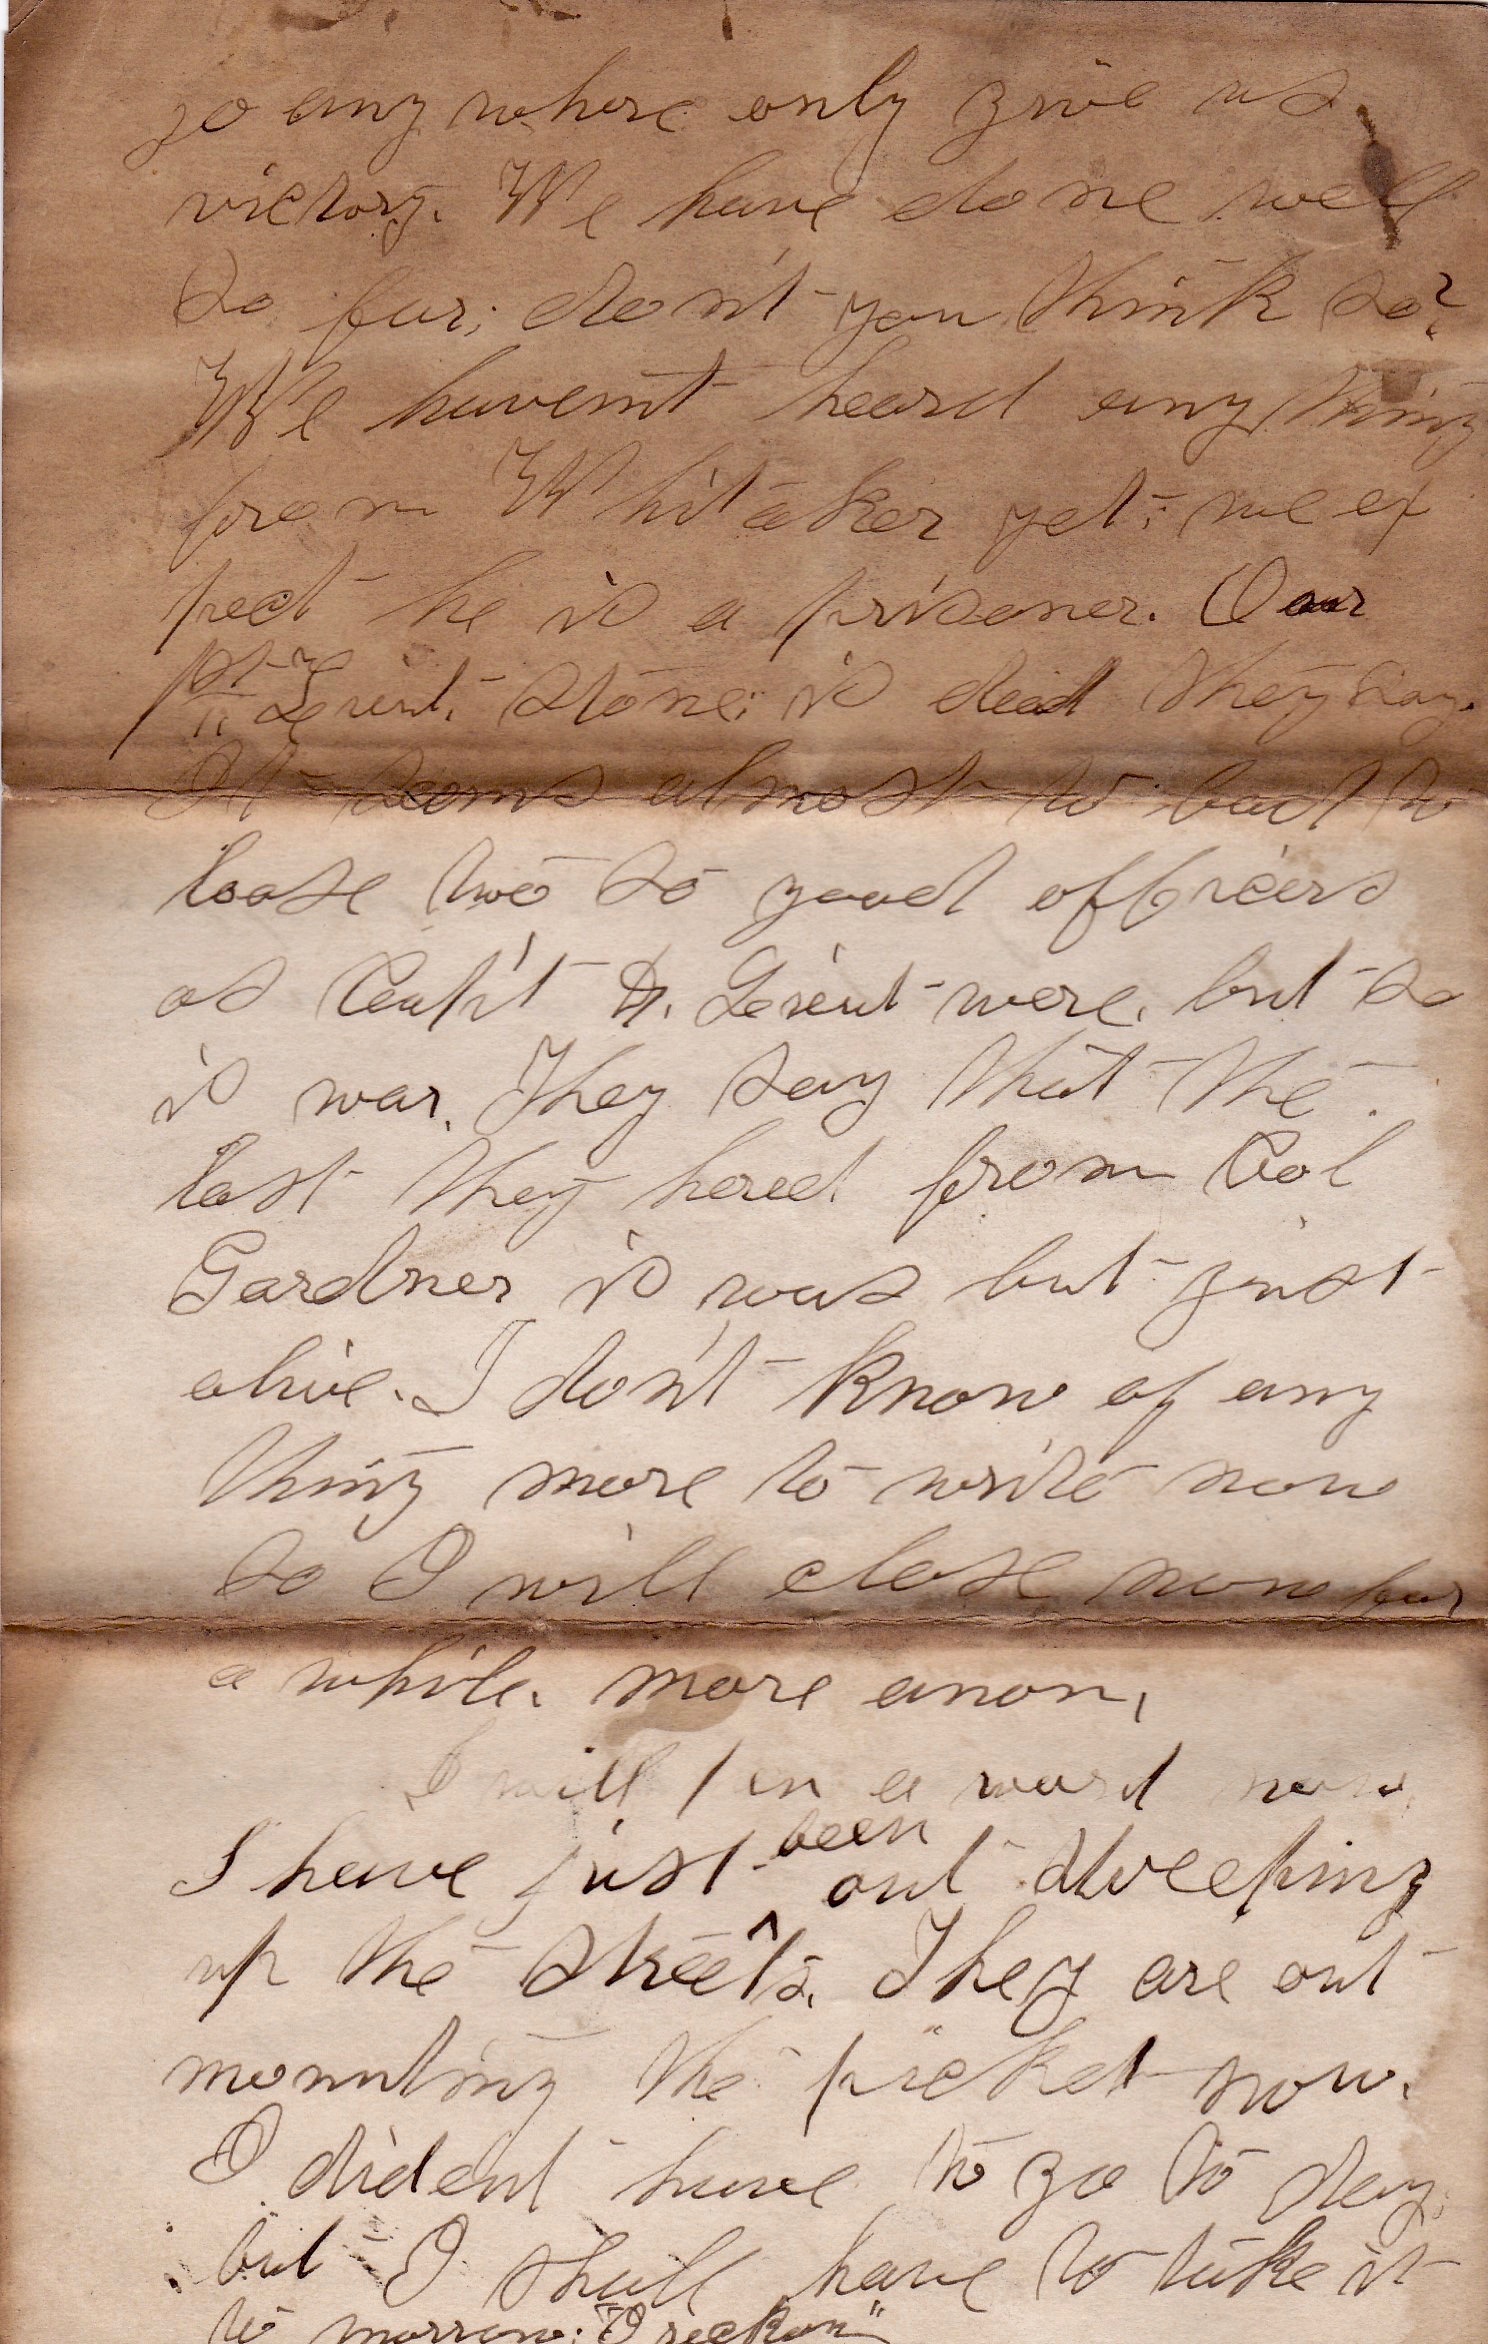 go any where only give us
victory. We have done well
so far; don't you think so?
We haven't heard any thing
from Whitaker yet; we ex
pect he is a prisoner. Our
1st Leiut. Stone; is dead they say.
It seems almost to bad to
loose two so good officers
as Capt &. Leiut were. but so
is war. They say that the
last they herd from Col
Gardner is was but just
alive. I don't know of any
thing more to write now
so I will close now for
a while. more anon.
I will pen a word now.
I have just been out sweeping
up the streets. They are out
mounting the picket now.
I dident have to go to day;
but I shall have to take it
to morrow; "I reckon"